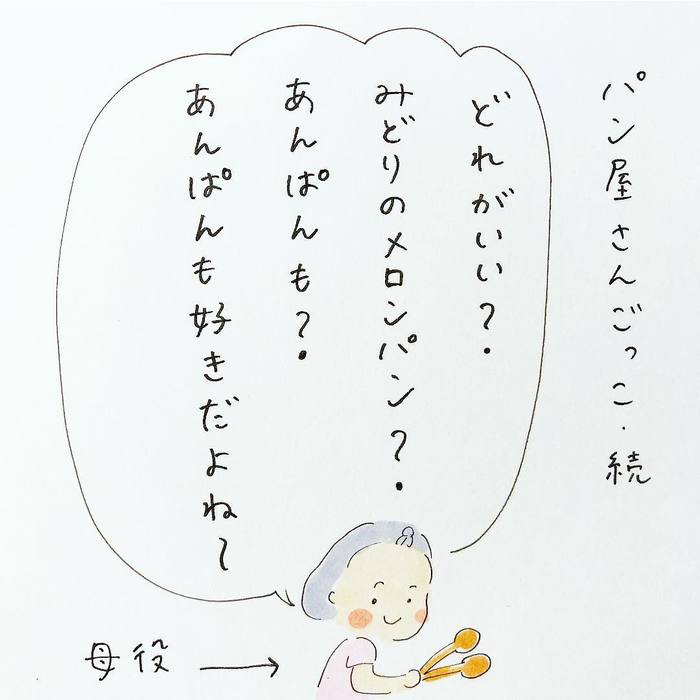 パン屋さんごっこ・続
どれがいい?
みどりのメロンパン?
あんぱんも?
あんぱんも好きだよね〜
母役 →